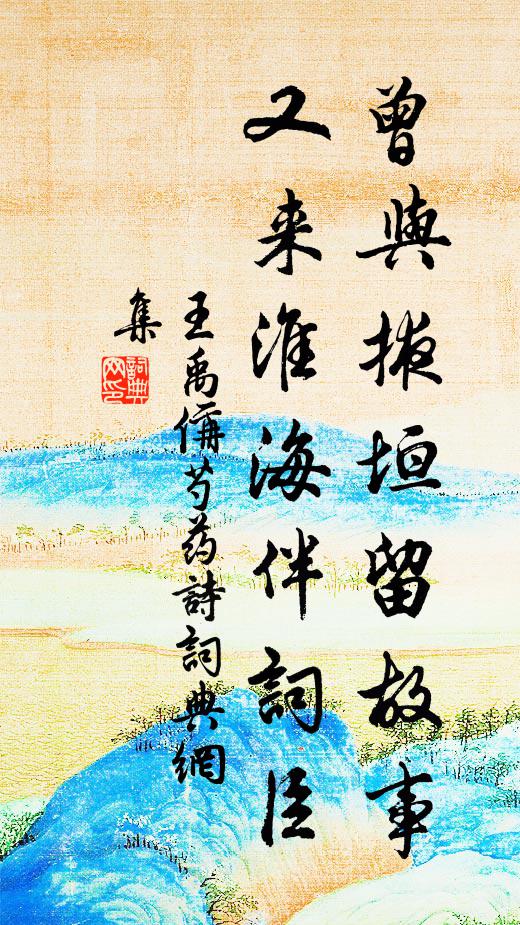 曾與掖垣留故事
又来淮海伴詞臣
王禹偁芍药詩詞典網
集
詞典网印